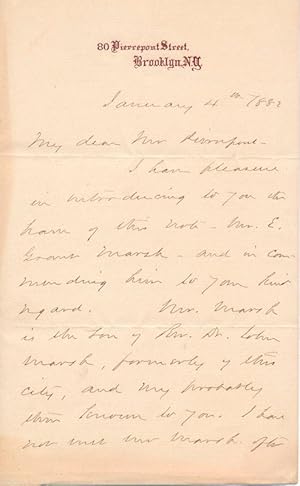 80 Pierrepont Street,
Brooklyn, N.Y.
January 4th 1882
My dear Mr Pierrepont -
I have pleasure
in introducing to you the
bearer of this note - Mr. E.
Grant Marsh - and in com
mending him to your kind
regard. Mr. Marsh
is the son of Rev. Dr. John
Marsh, formerly of this
city, and very probably
known to you. I have
not met Mr Marsh, often